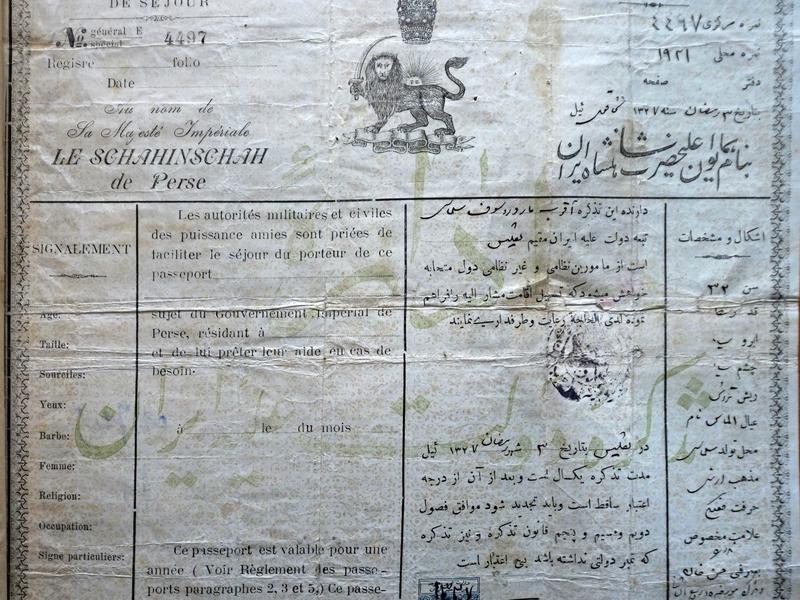 DE SÉJOUR
No. général E
spécial 4497
Registre folio
Date
Au nom de
Sa Majesté Impériale
LE SCHAHINSCHAH
de Perse
نمره مرکزی ۴۴۹۷
نمره محلی ۱۹۲۱
دفتر صفحه
بتاریخ ۳ رمضان سنه ۱۳۲۷ ئیل
بنام همایون اعلیحضرت شاهنشاه ایران
SIGNALEMENT
Age:
Taille:
Sourciles:
Yeux:
Barbe:
Femme:
Religion:
Occupation:
Signe particuliers:
Les autorités militaires et civiles
des puissance amies sont priées de
faciliter le séjour du porteur de ce
passeport
sujet du Gouvernement Impérial de
Perse, résidant à
et de lui prêter leur aide en cas de
besoin.
à le du mois
Ce passeport est valable pour une
année ( Voir Règlement des passe-
ports paragraphes 2, 3 et 5,) Ce passe-
دارنده این تذکره
تبعه دولت علیه ایران مقیم تفلیس
است از مامورین نظامی و غیر نظامی دول متحابه
خواهش میشود که تسهیل اقامت مشار الیه را فراهم
نموده لدی الحاجة رعایت و طرفداری نمایند
در تفلیس بتاریخ ۳ شهر رمضان ۱۳۲۷ ئیل
مدت تذکره یکسال است و بعد از آن از درجه
اعتبار ساقط است و باید تجدید شود موافق فصول
دویم و سیم و پنجم قانون تذکره و نیز تذکره
که تمبر دولتی نداشته باشد بی اعتبار است
اشکال و مشخصات
سن ۳۲
قد
ابرو
چشم
ریش
عیال
محل تولد
مذهب ارمنی
حرفت
علامت مخصوص